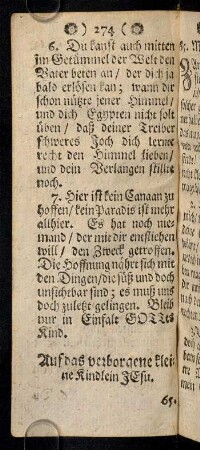 ( 274 )
6. Du kanst auch mitten
im Getümmel der Welt den
Vater beten an / der dich ja
bald erlösen kan; wann dir
schon nütze jener Himmel /
und dich Egypten nicht solt
üben / daß deiner Treiber
schweres Joch dich lerne
recht den Himmel lieben /
und dein Verlangen stille
noch.
7. Hier ist kein Canaan zu
hoffen / kein Paradis ist mehr
allhier. Es hat noch nie-
mand / der mit dir entfliehen
will / den Zweck getroffen.
Die Hoffnung nährt sich mit
den Dingen / die süß und doch
unsichtbar sind; es muß uns
doch zuletzt gelingen. Bleib
nur in Einfalt GOTTes
Kind.
Auf das verborgene klei-
ne Kindlein JEsu.
65.